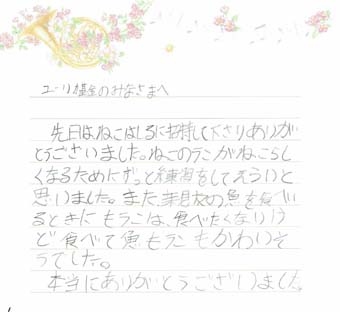 ユーリ基金のみなさまへ
先日はねこばしるに招待して下さりありが
とうございました。ねこのランがねこらし
くなるためにずっと練習をしてえらいと
思いました。また、の魚を食べい
るときにもラニは、食べたくなりけ
ど食べて魚もラニもかわいそ
うでした。
本当にありがとうございました。